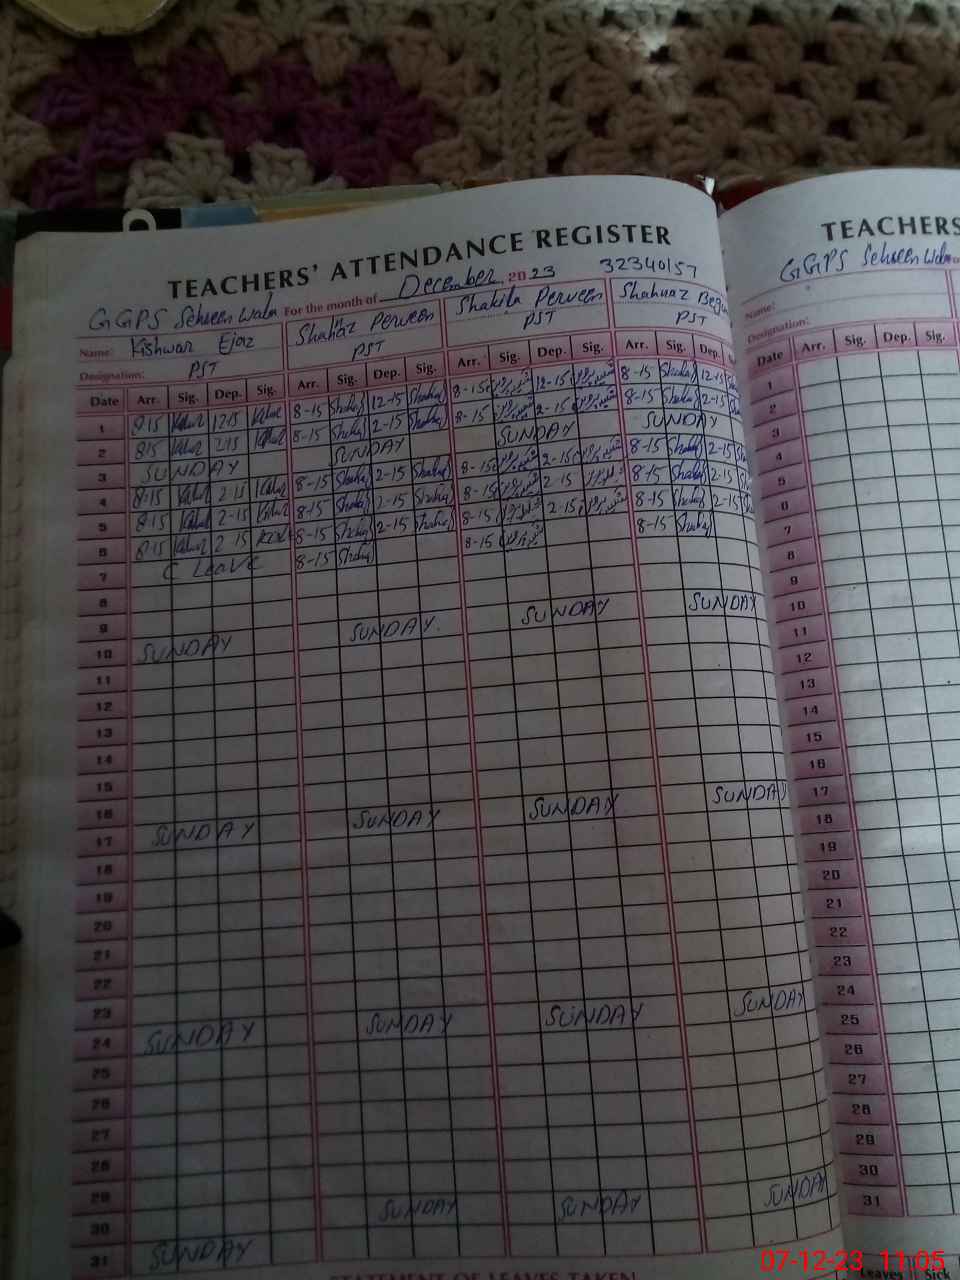 TEACHERS' ATTENDANCE REGISTER
GGPS Scheen Wala For the month of December 2023 32340157
Name: Kishwar Ejaz Shahnaz Perveen Shakila Perveen Shahnaz
Designation: PST PST PST PST
Date Arr. Sig. Dep. Sig. Arr. Sig. Dep. Sig. Arr. Sig. Dep. Sig. Arr. Sig. Dep.
1 8-15 12-15 8-15 12-15 8-15 12-15 8-15 12-15
2 8-15 2-15 8-15 2-15 8-15 2-15 8-15 2-15
3 SUNDAY SUNDAY SUNDAY SUNDAY
4 8-15 2-15 8-15 2-15 8-15 2-15 8-15 2-15
5 8-15 2-15 8-15 2-15 8-15 2-15 8-15 2-15
6 8-15 2-15 8-15 2-15 8-15 2-15 8-15 2-15
7 C Leave 8-15 8-15 8-15
8
9
10 SUNDAY SUNDAY SUNDAY SUNDAY
11
12
13
14
15
16
17 SUNDAY SUNDAY SUNDAY SUNDAY
18
19
20
21
22
23
24 SUNDAY SUNDAY SUNDAY SUNDAY
25
26
27
28
29
30
31 SUNDAY SUNDAY SUNDAY SUNDAY
STATEMENT OF LEAVES TAKEN
TEACHERS
GGPS Scheen Wala
Name:
Designation:
Date Arr. Sig. Dep. Sig.
1
2
3
4
5
6
7
8
9
10
11
12
13
14
15
16
17
18
19
20
21
22
23
24
25
26
27
28
29
30
31
Leaves Sick
07-12-23 11:05